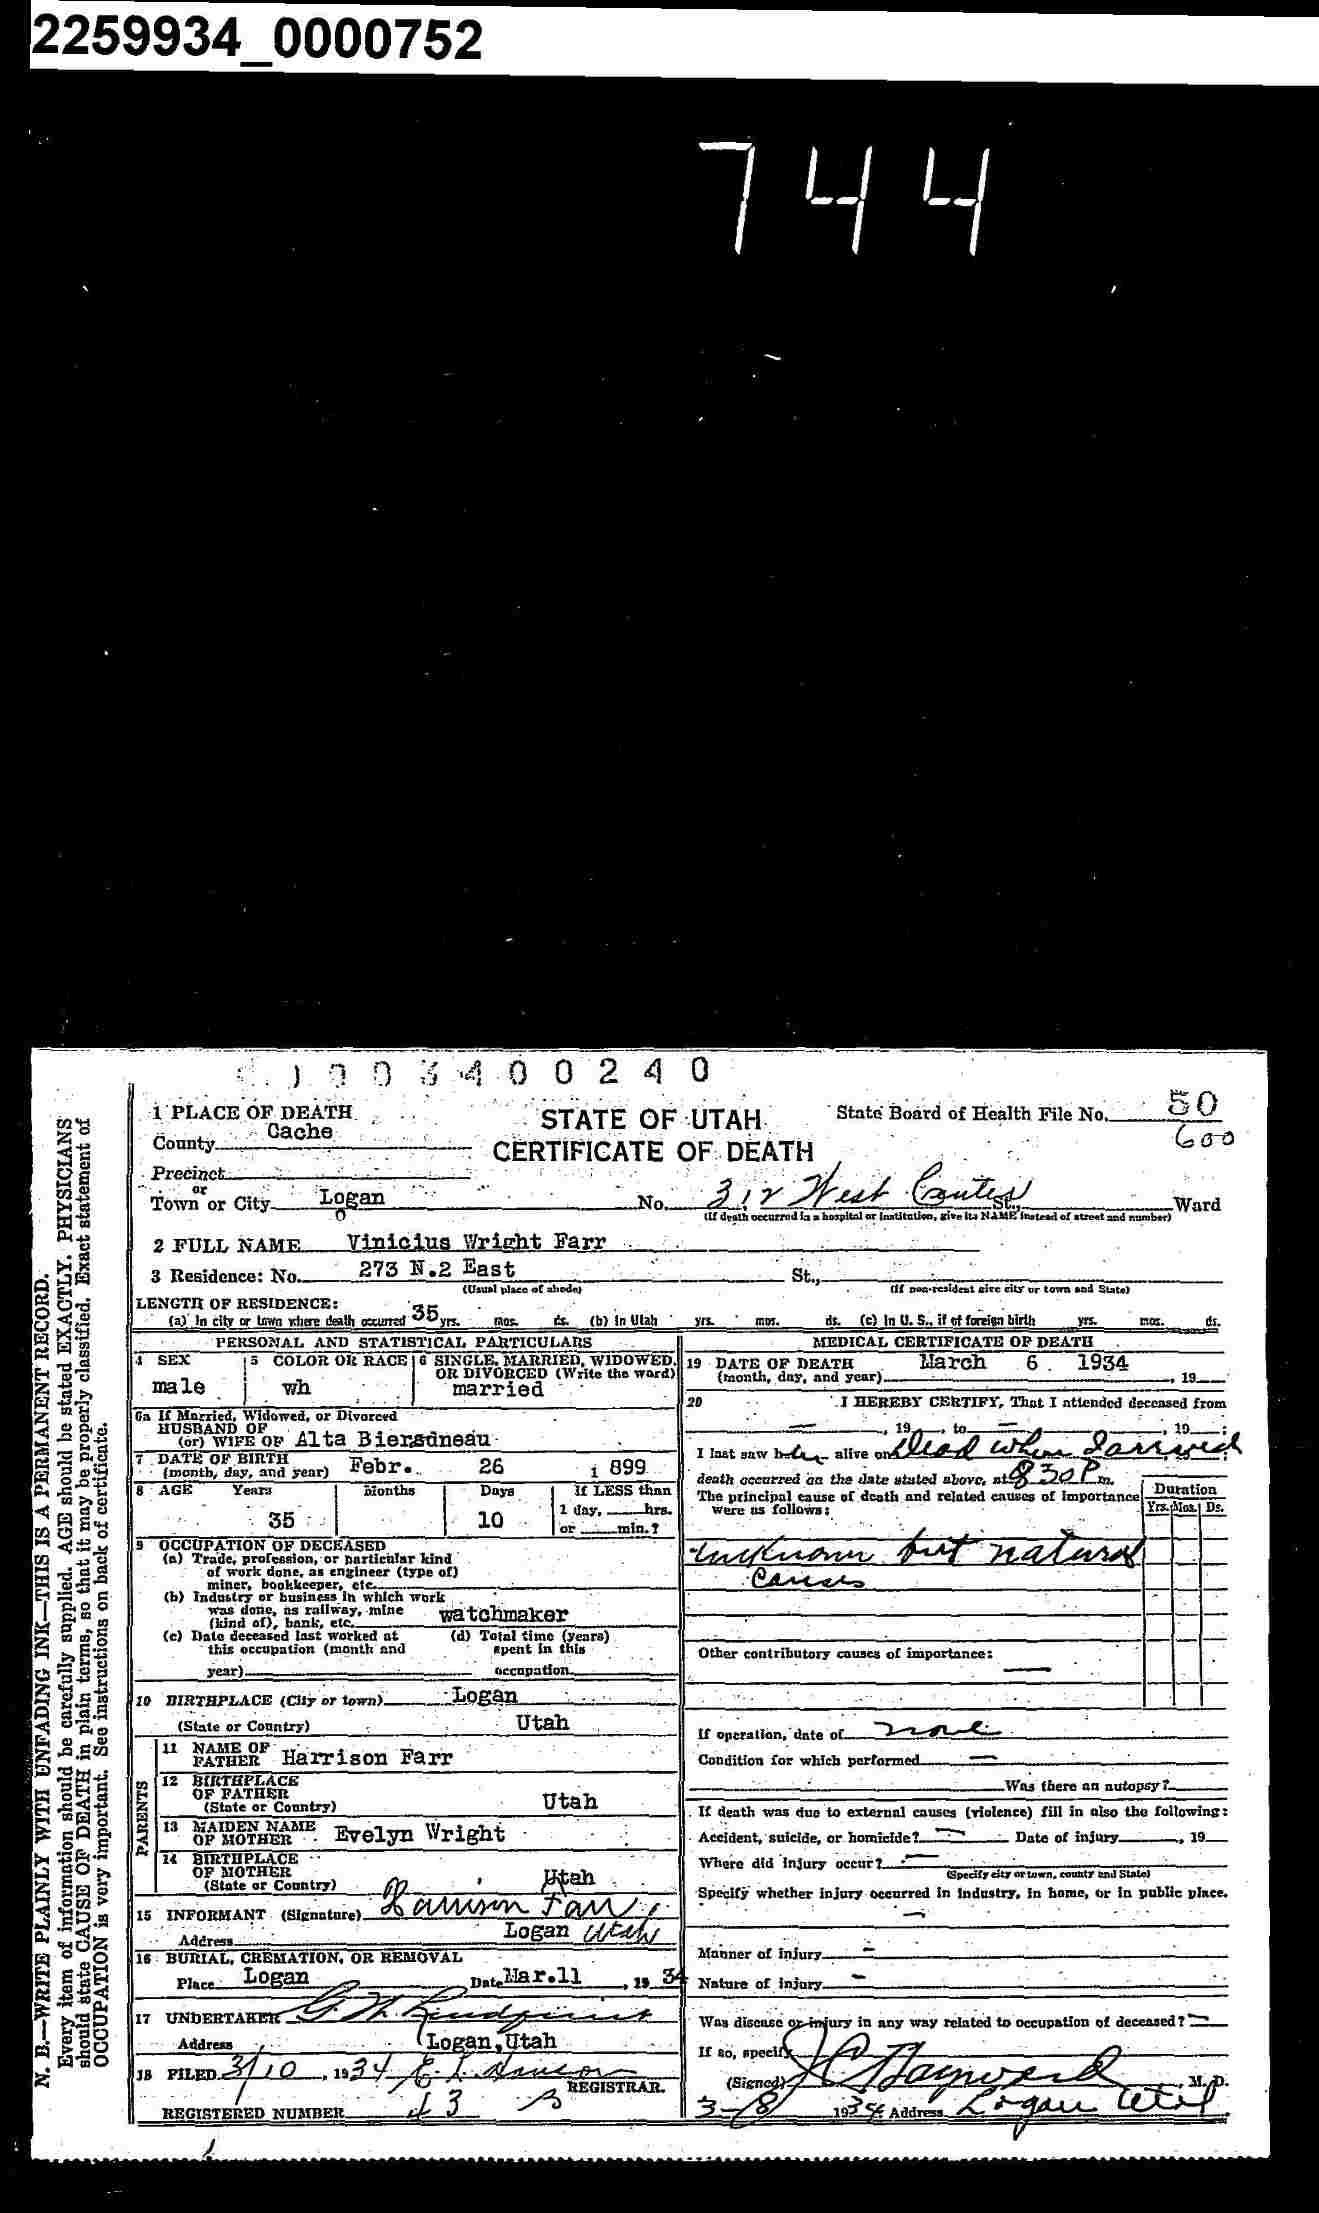 2259934_0000752
744
003400240
1 PLACE OF DEATH
STATE OF UTAH
CERTIFICATE OF DEATH
State Board of Health File No. 50
600
County Cache
Precinct
or
Town or City Logan No. 312 West Center St., Ward
(If death occurred in a hospital or institution, give its NAME instead of street and number)
2 FULL NAME Vinicius Wright Farr
3 Residence: No. 273 N.2 East St.,
(Usual place of abode) (If non-resident give city or town and State)
LENGTH OF RESIDENCE:
(a) In city or town where death occurred 35 yrs. mos. ds. (b) In Utah yrs. mos. ds. (c) In U. S., if of foreign birth yrs. mos. ds.
PERSONAL AND STATISTICAL PARTICULARS
4 SEX male
5 COLOR OR RACE wh
6 SINGLE, MARRIED, WIDOWED, OR DIVORCED (Write the word) married
6a If Married, Widowed, or Divorced
HUSBAND OF
(or) WIFE OF Alta Biersdneau
7 DATE OF BIRTH
(month, day, and year) Febr. 26 1 899
8 AGE Years Months Days If LESS than
35 10 1 day, hrs.
or min.?
9 OCCUPATION OF DECEASED
(a) Trade, profession, or particular kind
of work done, as engineer (type of)
miner, bookkeeper, etc.
(b) Industry or business in which work
was done, as railway, mine
(kind of), bank, etc. watchmaker
(c) Date deceased last worked at
this occupation (month and
year)
(d) Total time (years)
spent in this
occupation
10 BIRTHPLACE (City or town) Logan
(State or Country) Utah
PARENTS
11 NAME OF
FATHER Harrison Farr
12 BIRTHPLACE
OF FATHER
(State or Country) Utah
13 MAIDEN NAME
OF MOTHER Evelyn Wright
14 BIRTHPLACE
OF MOTHER
(State or Country) Utah
15 INFORMANT (Signature) Harrison Farr
Address Logan Utah
16 BURIAL, CREMATION, OR REMOVAL
Place Logan Date Mar.11, 19 34
17 UNDERTAKER
Address Logan,Utah
18 FILED 3/10, 1934
REGISTRAR.
REGISTERED NUMBER 43
MEDICAL CERTIFICATE OF DEATH
19 DATE OF DEATH March 6 1934
(month, day, and year) , 19
20 I HEREBY CERTIFY, That I attended deceased from
— , 19 , to — , 19 ;
I last saw h alive on Dead when I arrived
death occurred on the date stated above, at 8 30 P m.
The principal cause of death and related causes of importance
were as follows:
Duration
Yrs. Mos. Ds.
unknown but natural
causes
Other contributory causes of importance:
—
If operation, date of none
Condition for which performed —
Was there an autopsy?
If death was due to external causes (violence) fill in also the following:
Accident, suicide, or homicide? — Date of injury , 19
Where did injury occur? —
(Specify city or town, county and State)
Specify whether injury occurred in industry, in home, or in public place.
—
Manner of injury —
Nature of injury —
Was disease or injury in any way related to occupation of deceased? —
If so, specify
(Signed) Hayward, M. D.
3-8 1934 Address Logan Utah
N. B.—WRITE PLAINLY WITH UNFADING INK—THIS IS A PERMANENT RECORD.
Every item of information should be carefully supplied. AGE should be stated EXACTLY. PHYSICIANS
should state CAUSE OF DEATH in plain terms, so that it may be properly classified. Exact statement of
OCCUPATION is very important. See instructions on back of certificate.